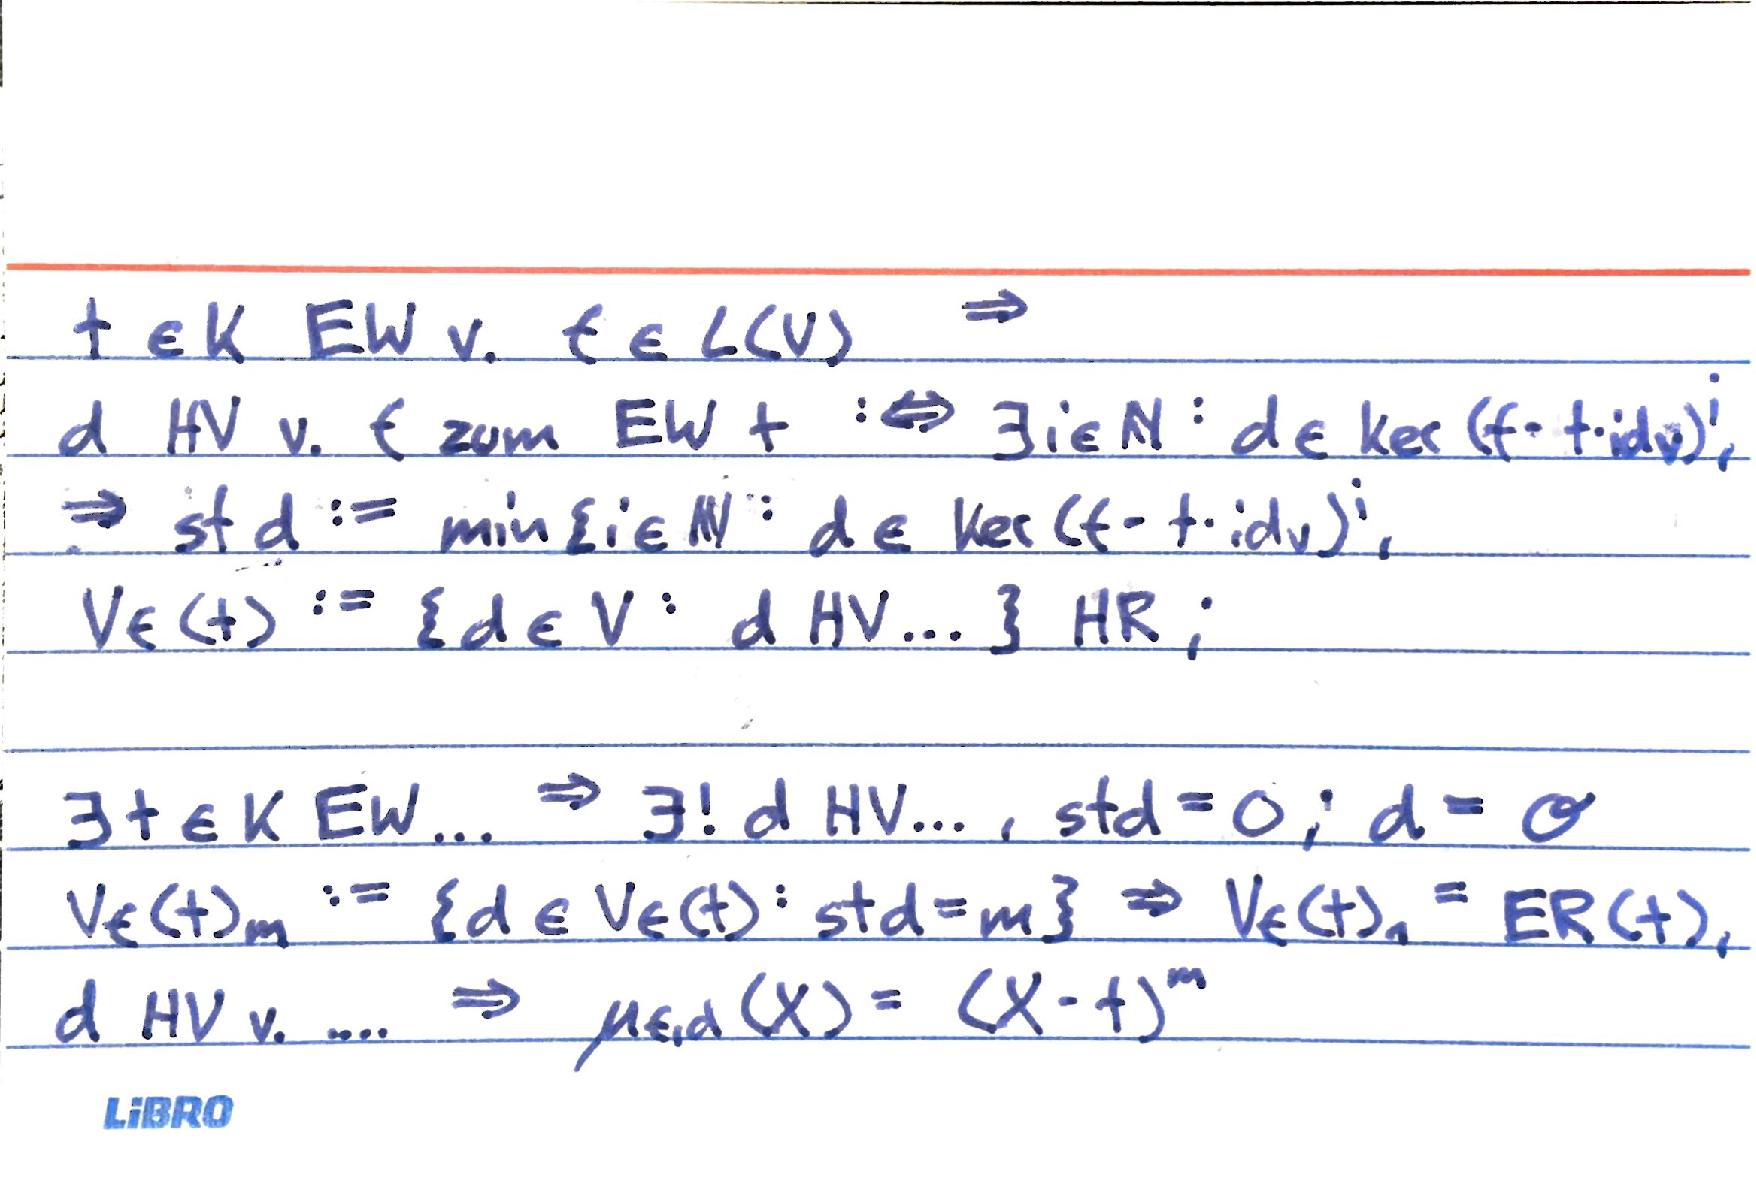 t ∈ K EW v. f ∈ L(V) ⇒
d HV v. f zum EW t :⇔ ∃ i ∈ ℕ : d ∈ ker (f - t·id_V)^i,
⇒ st d := min {i ∈ ℕ : d ∈ ker (f - t·id_V)^i,
V_f(t) := {d ∈ V : d HV ... } HR ;
∃ t ∈ K EW ... ⇒ ∃! d HV ... , st d = 0 ; d = o
V_f(t)_m := {d ∈ V_f(t) : st d = m} ⇒ V_f(t)_1 = ER(t),
d HV v. .... ⇒ μ_f,d (X) = (X - t)^m
LiBRO